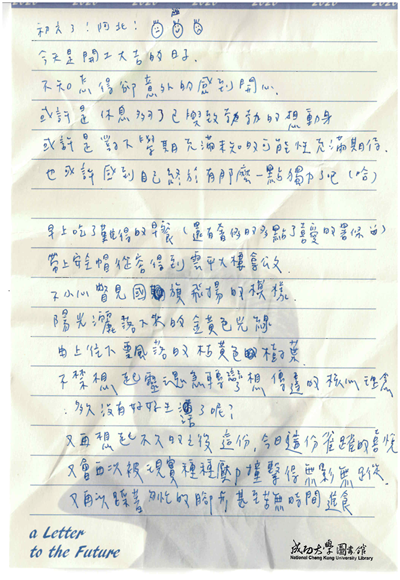 2020 2020 2020 2020
初六了!阿北!
今天是開工大吉的日子.
不知怎得卻意外的感到開心.
或許是休息夠了已變蠢蠢的想動身
或許是對下學期充滿未知的可能性充滿期待.
也或許感到自己終於有那麼一點獨了吧(哈)
早上吃了難得的早餐(還有奢侈的多點了喜愛的薯條)
帶上安全帽從容得到雲平大樓拿公文.
不小心瞥見國旗飛揚的模樣.
陽光灑落下來的金黃色光線
為上往下飄落的枯黃色樹葉.
不禁想起靈魂急轉彎想傳達的核心理念
:多久沒有好好生活了呢?
又再想起不久的之後這份,今日這份雀躍的喜悅
又會再次被現實種種壓力撞擊得無影無蹤.
又再以踩著的腳步甚至無時間進食
a Letter
to the Future
成功大學圖書館
National Cheng Kung University Library